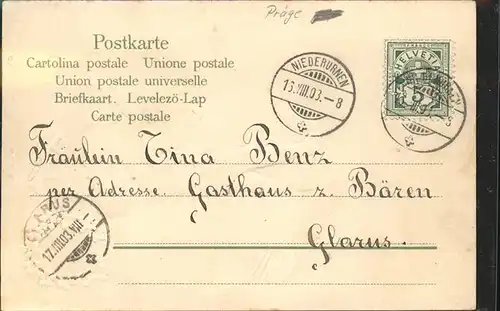 Präge
Postkarte
Cartolina postale Unione postale
Union postale universelle
Briefkaart. Levelező-Lap
Carte postale
NIEDERURNEN
HELVETIA
5
Fräulein Tina Benz
per Adresse. Gasthaus z. Bären
Glarus.
GLARUS
17.VIII.03.VII-